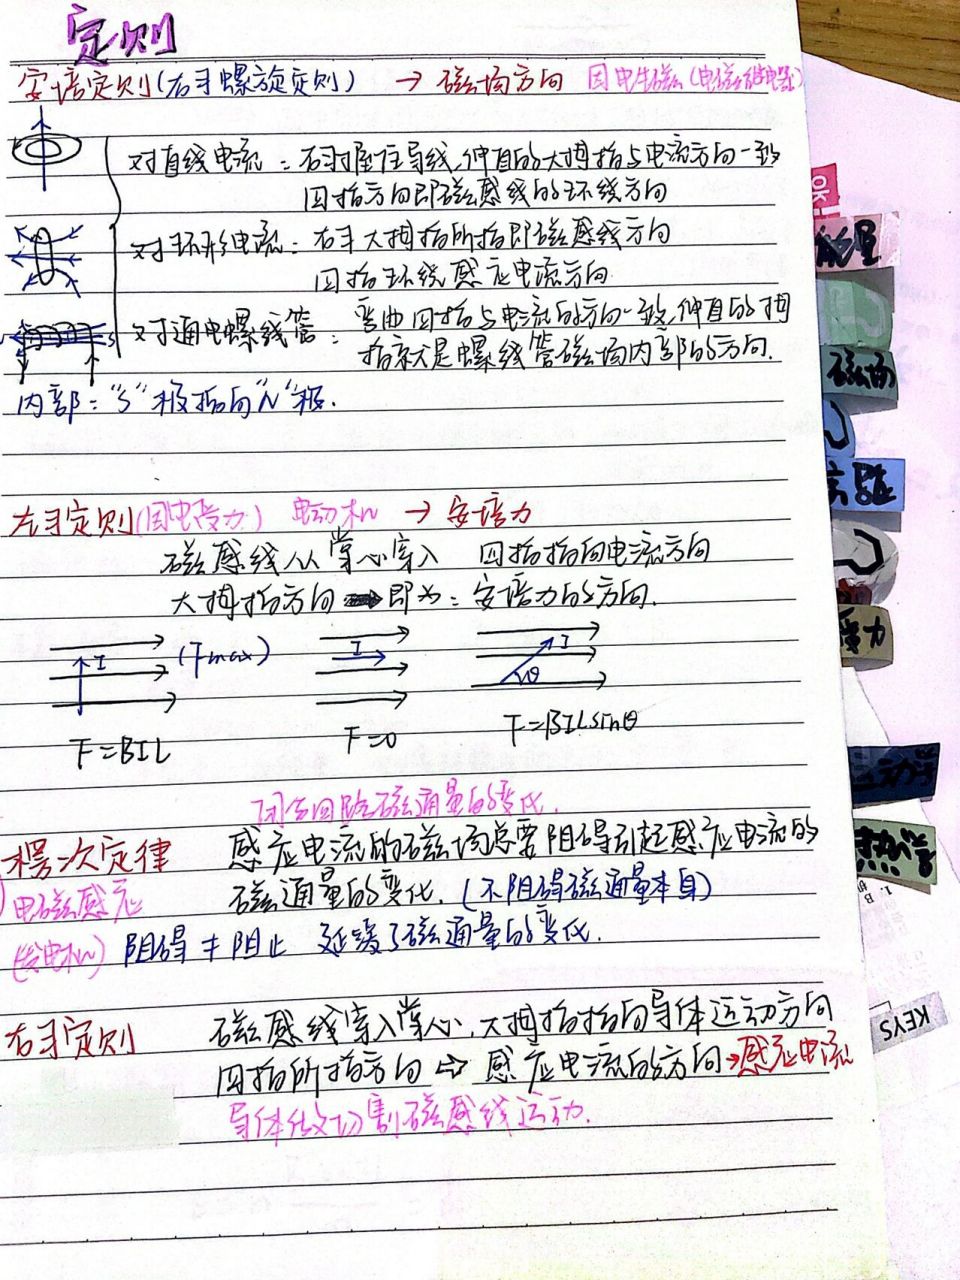 定则
安培定则(右手螺旋定则) → 磁场方向 因电生磁(电磁继电器)
对直线电流：右手握住导线,伸直的大拇指与电流方向一致
四指方向即磁感线的环绕方向
对环形电流：右手大拇指所指即磁感线方向
四指环绕感应电流方向
对通电螺线管：弯曲四指与电流的方向一致,伸直的拇
指就是螺线管磁场内部的方向.
S
内部："S"极指向"N"极.
左手定则(因电受力) 电动机 → 安培力
磁感线从掌心穿入 四指指向电流方向
大拇指方向 即为：安培力的方向.
I (Fmax) I I θ
F=BIL F=0 F=BILsinθ
闭合回路磁通量的变化.
楞次定律 感应电流的磁场总要阻碍引起感应电流的
电磁感应 磁通量的变化.(不阻碍磁通量本身)
(发电机) 阻碍≠阻止 延缓了磁通量的变化.
右手定则 磁感线穿入掌心,大拇指指向导体运动方向
四指所指方向 ⇒ 感应电流的方向→感应电流
导体做切割磁感线运动.
OK
能量
磁场
实验
力
运动学
热学
KEYS